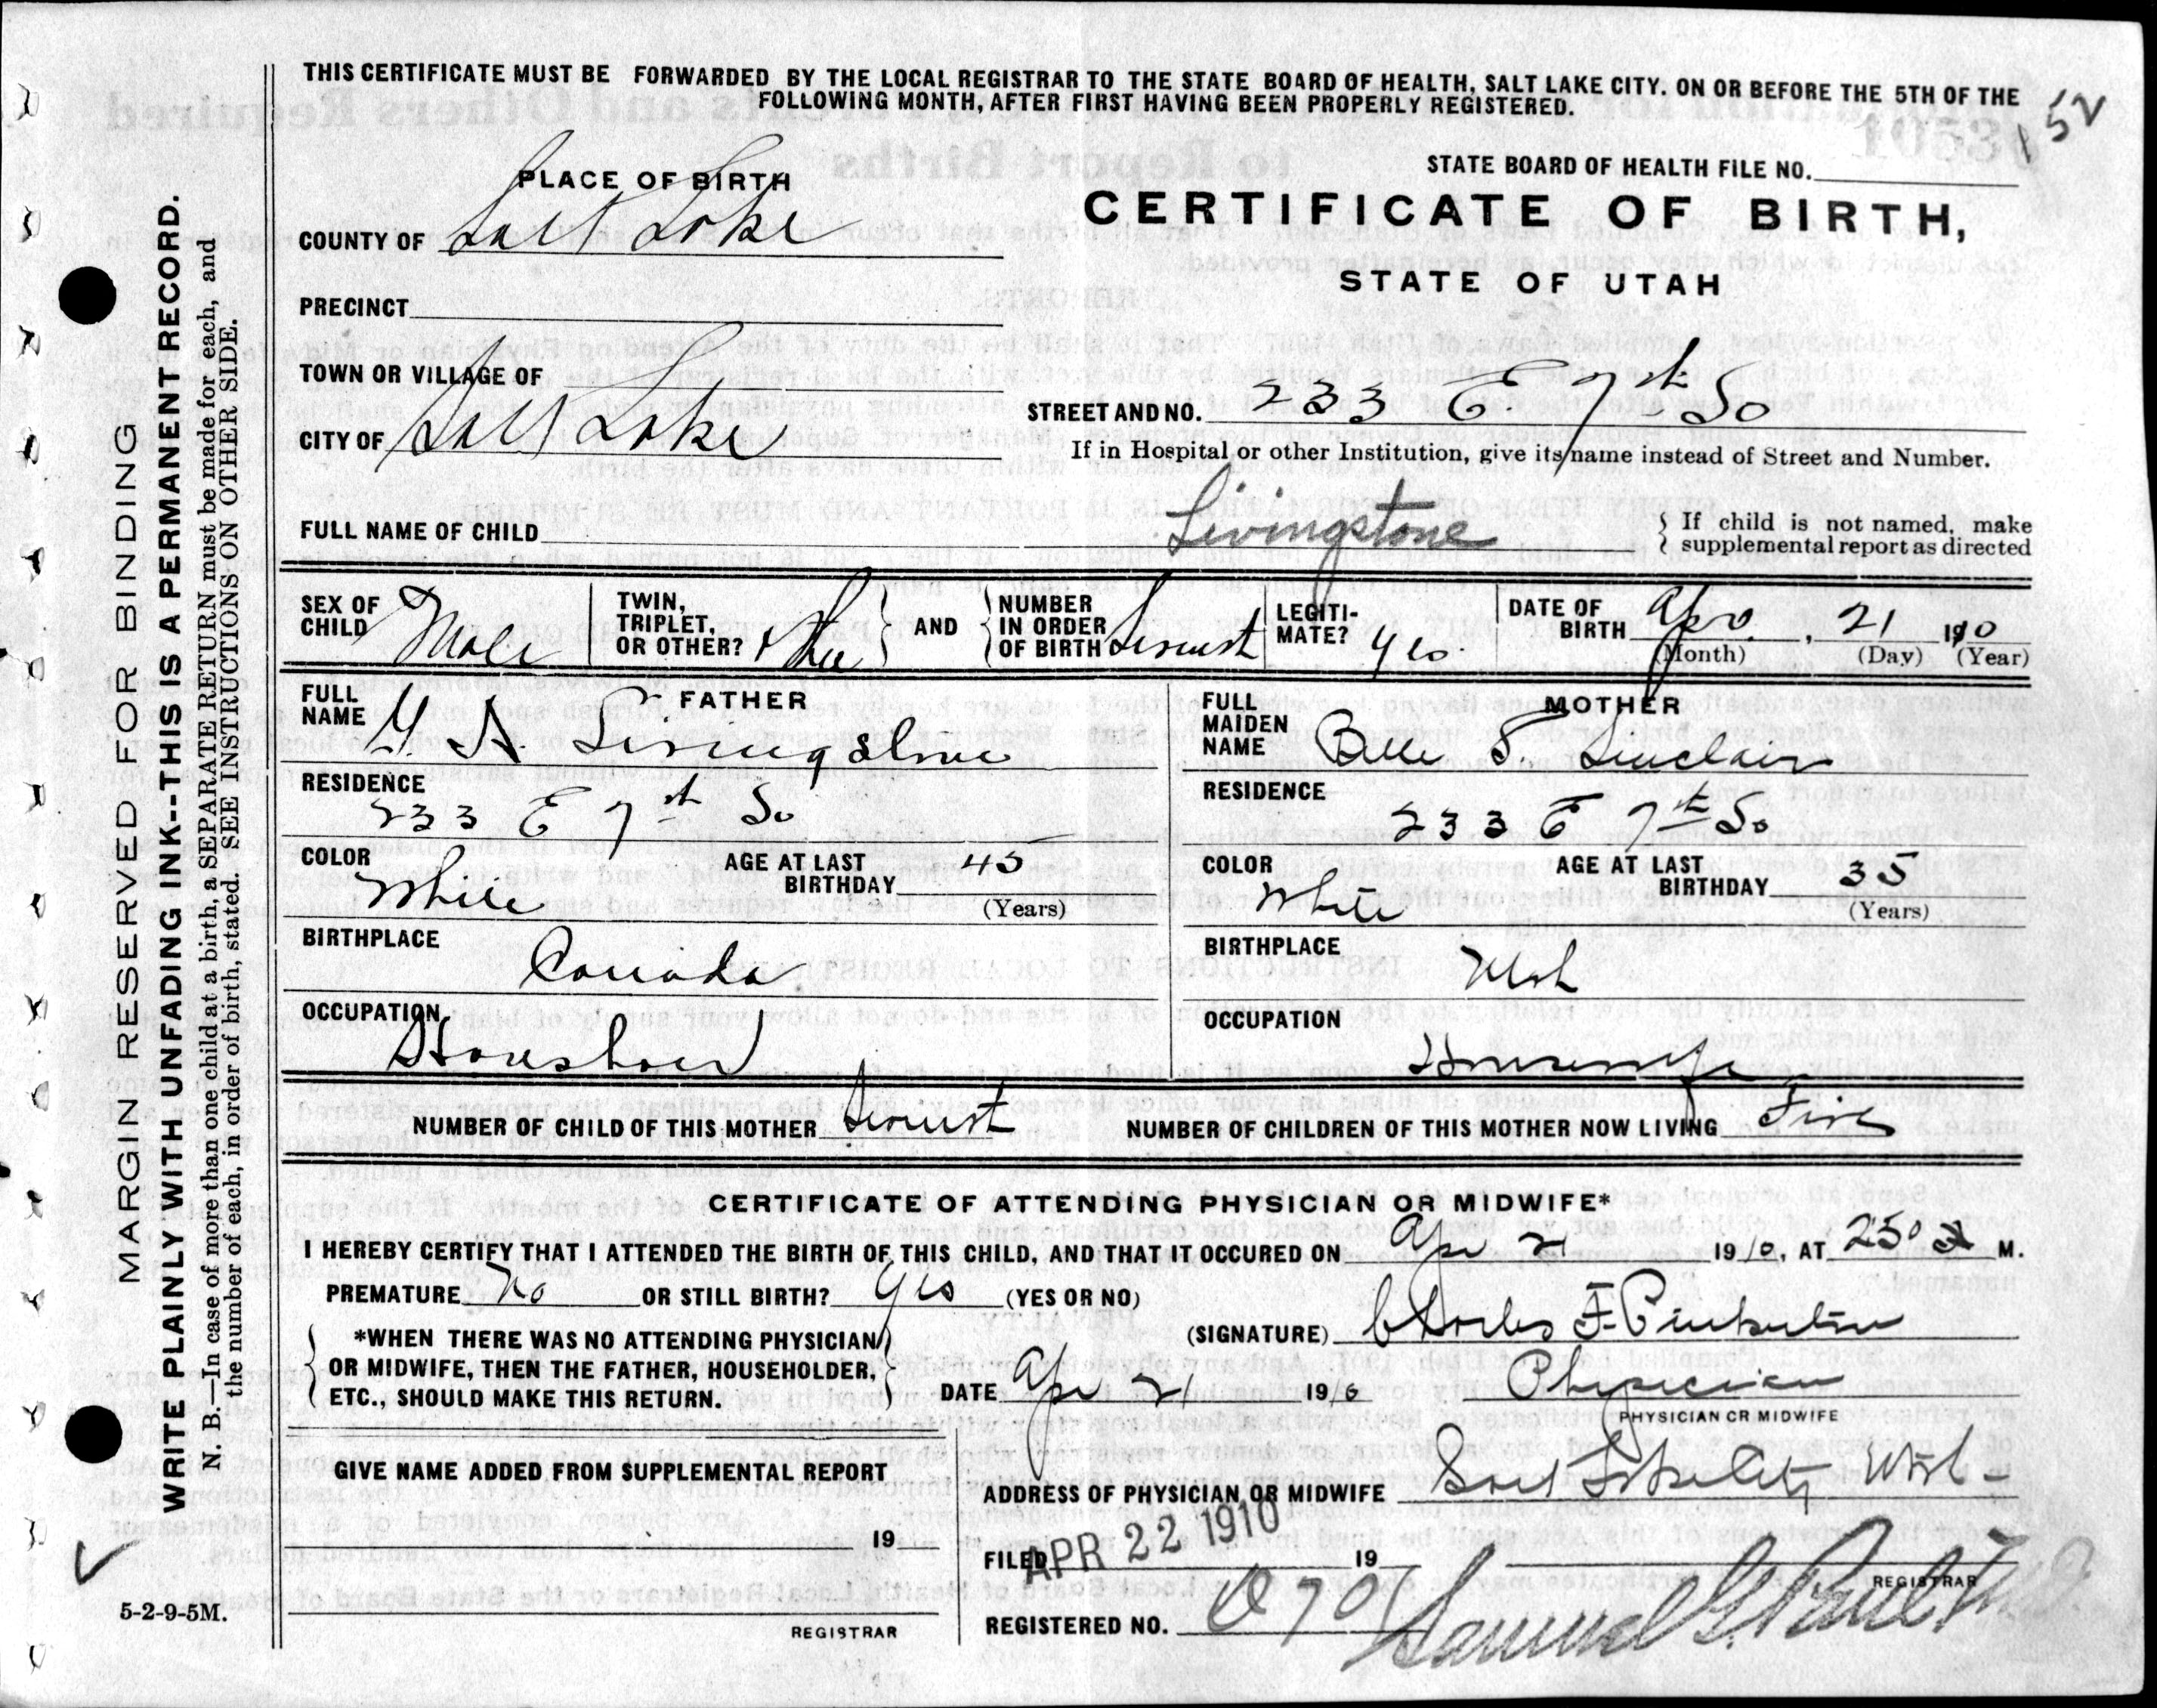 THIS CERTIFICATE MUST BE FORWARDED BY THE LOCAL REGISTRAR TO THE STATE BOARD OF HEALTH, SALT LAKE CITY. ON OR BEFORE THE 5TH OF THE
FOLLOWING MONTH, AFTER FIRST HAVING BEEN PROPERLY REGISTERED.
152
PLACE OF BIRTH
STATE BOARD OF HEALTH FILE NO.
CERTIFICATE OF BIRTH,
STATE OF UTAH
COUNTY OF Salt Lake
PRECINCT
TOWN OR VILLAGE OF
CITY OF Salt Lake
STREET AND NO. 233 E 7th So
If in Hospital or other Institution, give its name instead of Street and Number.
FULL NAME OF CHILD Livingstone
If child is not named, make
supplemental report as directed
SEX OF CHILD Male
TWIN, TRIPLET, OR OTHER?
AND
NUMBER IN ORDER OF BIRTH
LEGITI- MATE? Yes
DATE OF BIRTH Apr. 21 1910
(Month) (Day) (Year)
FATHER
FULL NAME A. Livingstone
RESIDENCE
233 E 7th So
COLOR White
AGE AT LAST BIRTHDAY 45
(Years)
BIRTHPLACE
Canada
OCCUPATION
MOTHER
FULL MAIDEN NAME Belle S. Sinclair
RESIDENCE
233 E 7th So
COLOR White
AGE AT LAST BIRTHDAY 35
(Years)
BIRTHPLACE
Utah
OCCUPATION
Housewife
NUMBER OF CHILD OF THIS MOTHER
NUMBER OF CHILDREN OF THIS MOTHER NOW LIVING Five
CERTIFICATE OF ATTENDING PHYSICIAN OR MIDWIFE*
I HEREBY CERTIFY THAT I ATTENDED THE BIRTH OF THIS CHILD, AND THAT IT OCCURED ON Apr 21 1910, AT 250 a M.
PREMATURE No OR STILL BIRTH? Yes (YES OR NO)
*WHEN THERE WAS NO ATTENDING PHYSICIAN
OR MIDWIFE, THEN THE FATHER, HOUSEHOLDER,
ETC., SHOULD MAKE THIS RETURN.
(SIGNATURE) Charles F Pinkerton
DATE Apr 21 1910
Physician
PHYSICIAN OR MIDWIFE
GIVE NAME ADDED FROM SUPPLEMENTAL REPORT
ADDRESS OF PHYSICIAN OR MIDWIFE Salt Lake City Utah
19
FILED APR 22 1910 19
REGISTRAR
REGISTERED NO.
Samuel G. Paul M.D.
REGISTRAR
5-2-9-5M.
MARGIN RESERVED FOR BINDING
WRITE PLAINLY WITH UNFADING INK--THIS IS A PERMANENT RECORD.
N. B.—In case of more than one child at a birth, a SEPARATE RETURN must be made for each, and
the number of each, in order of birth, stated. SEE INSTRUCTIONS ON OTHER SIDE.